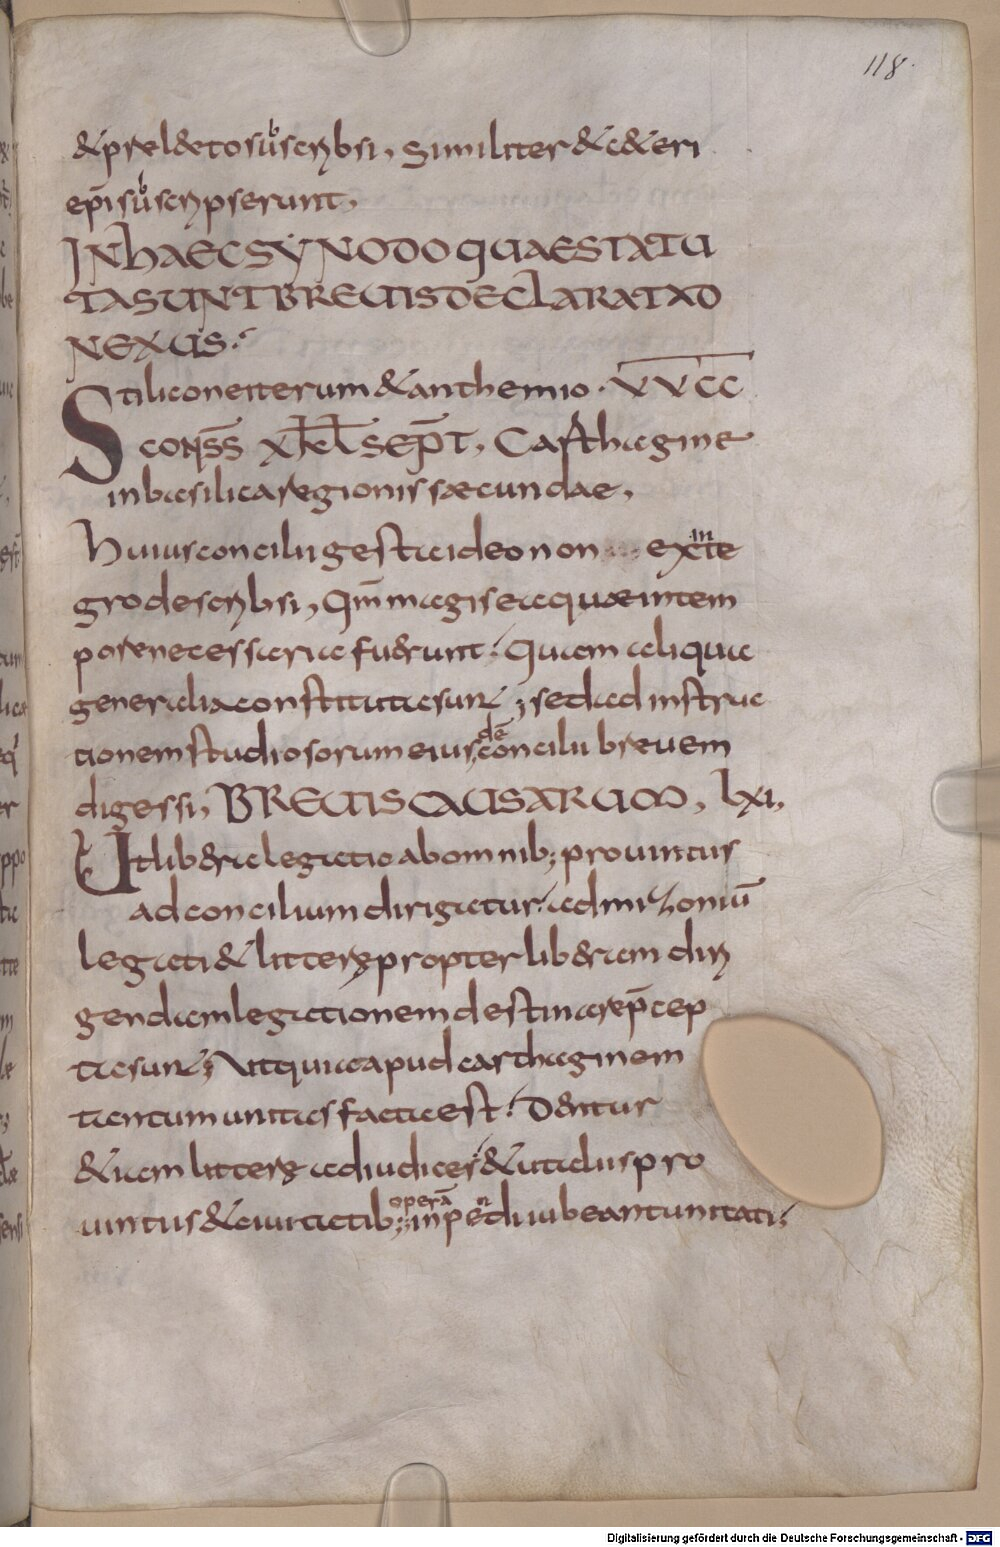 118.
& prelecto suᵇscripsi, Similiter & ceteri
ep̄i suᵇscripserunt,
IN HAEC SYNODO QUAE STATU
TA SUNT BREUIS DECLARAT AD
NEXUS:
Stilicone iterum & anthemio · VVCC
CONS̄S̄ XVII KL SEP̄T, Carthagine
in basilica regionis saecundae,
Huius concilii gesta ideo non ex inte
gro descripsi, Qm̄ magis ea quae in tem
pore necessaria fuerunt: Quam aliqua
generalia constituta sunt; sed ad instruc
tionem studiosorum eius dē concilii breuem
digessi, BREUIS CAUSARUM, LXI,
Ut libera legatio ab omnib; prouinciis
ad concilium dirigatur: ad mizoniū
legati & litterę propter liberam diri
gendam legationem destinare p̄cep
ta sunt; Ut quia apud carthaginem
tantum unitas facta est: Dentur
&iam litterę ad iudices & ut aliis pro
uinciis & ciuitatib; operā inpendi iubeant unitati;
Digitalisierung gefördert durch die Deutsche Forschungsgemeinschaft - DFG